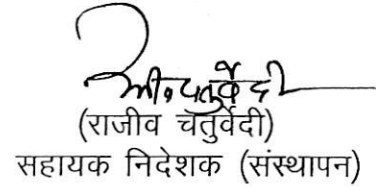 (राजीव चतुर्वेदी)
सहायक निदेशक (संस्थापन)